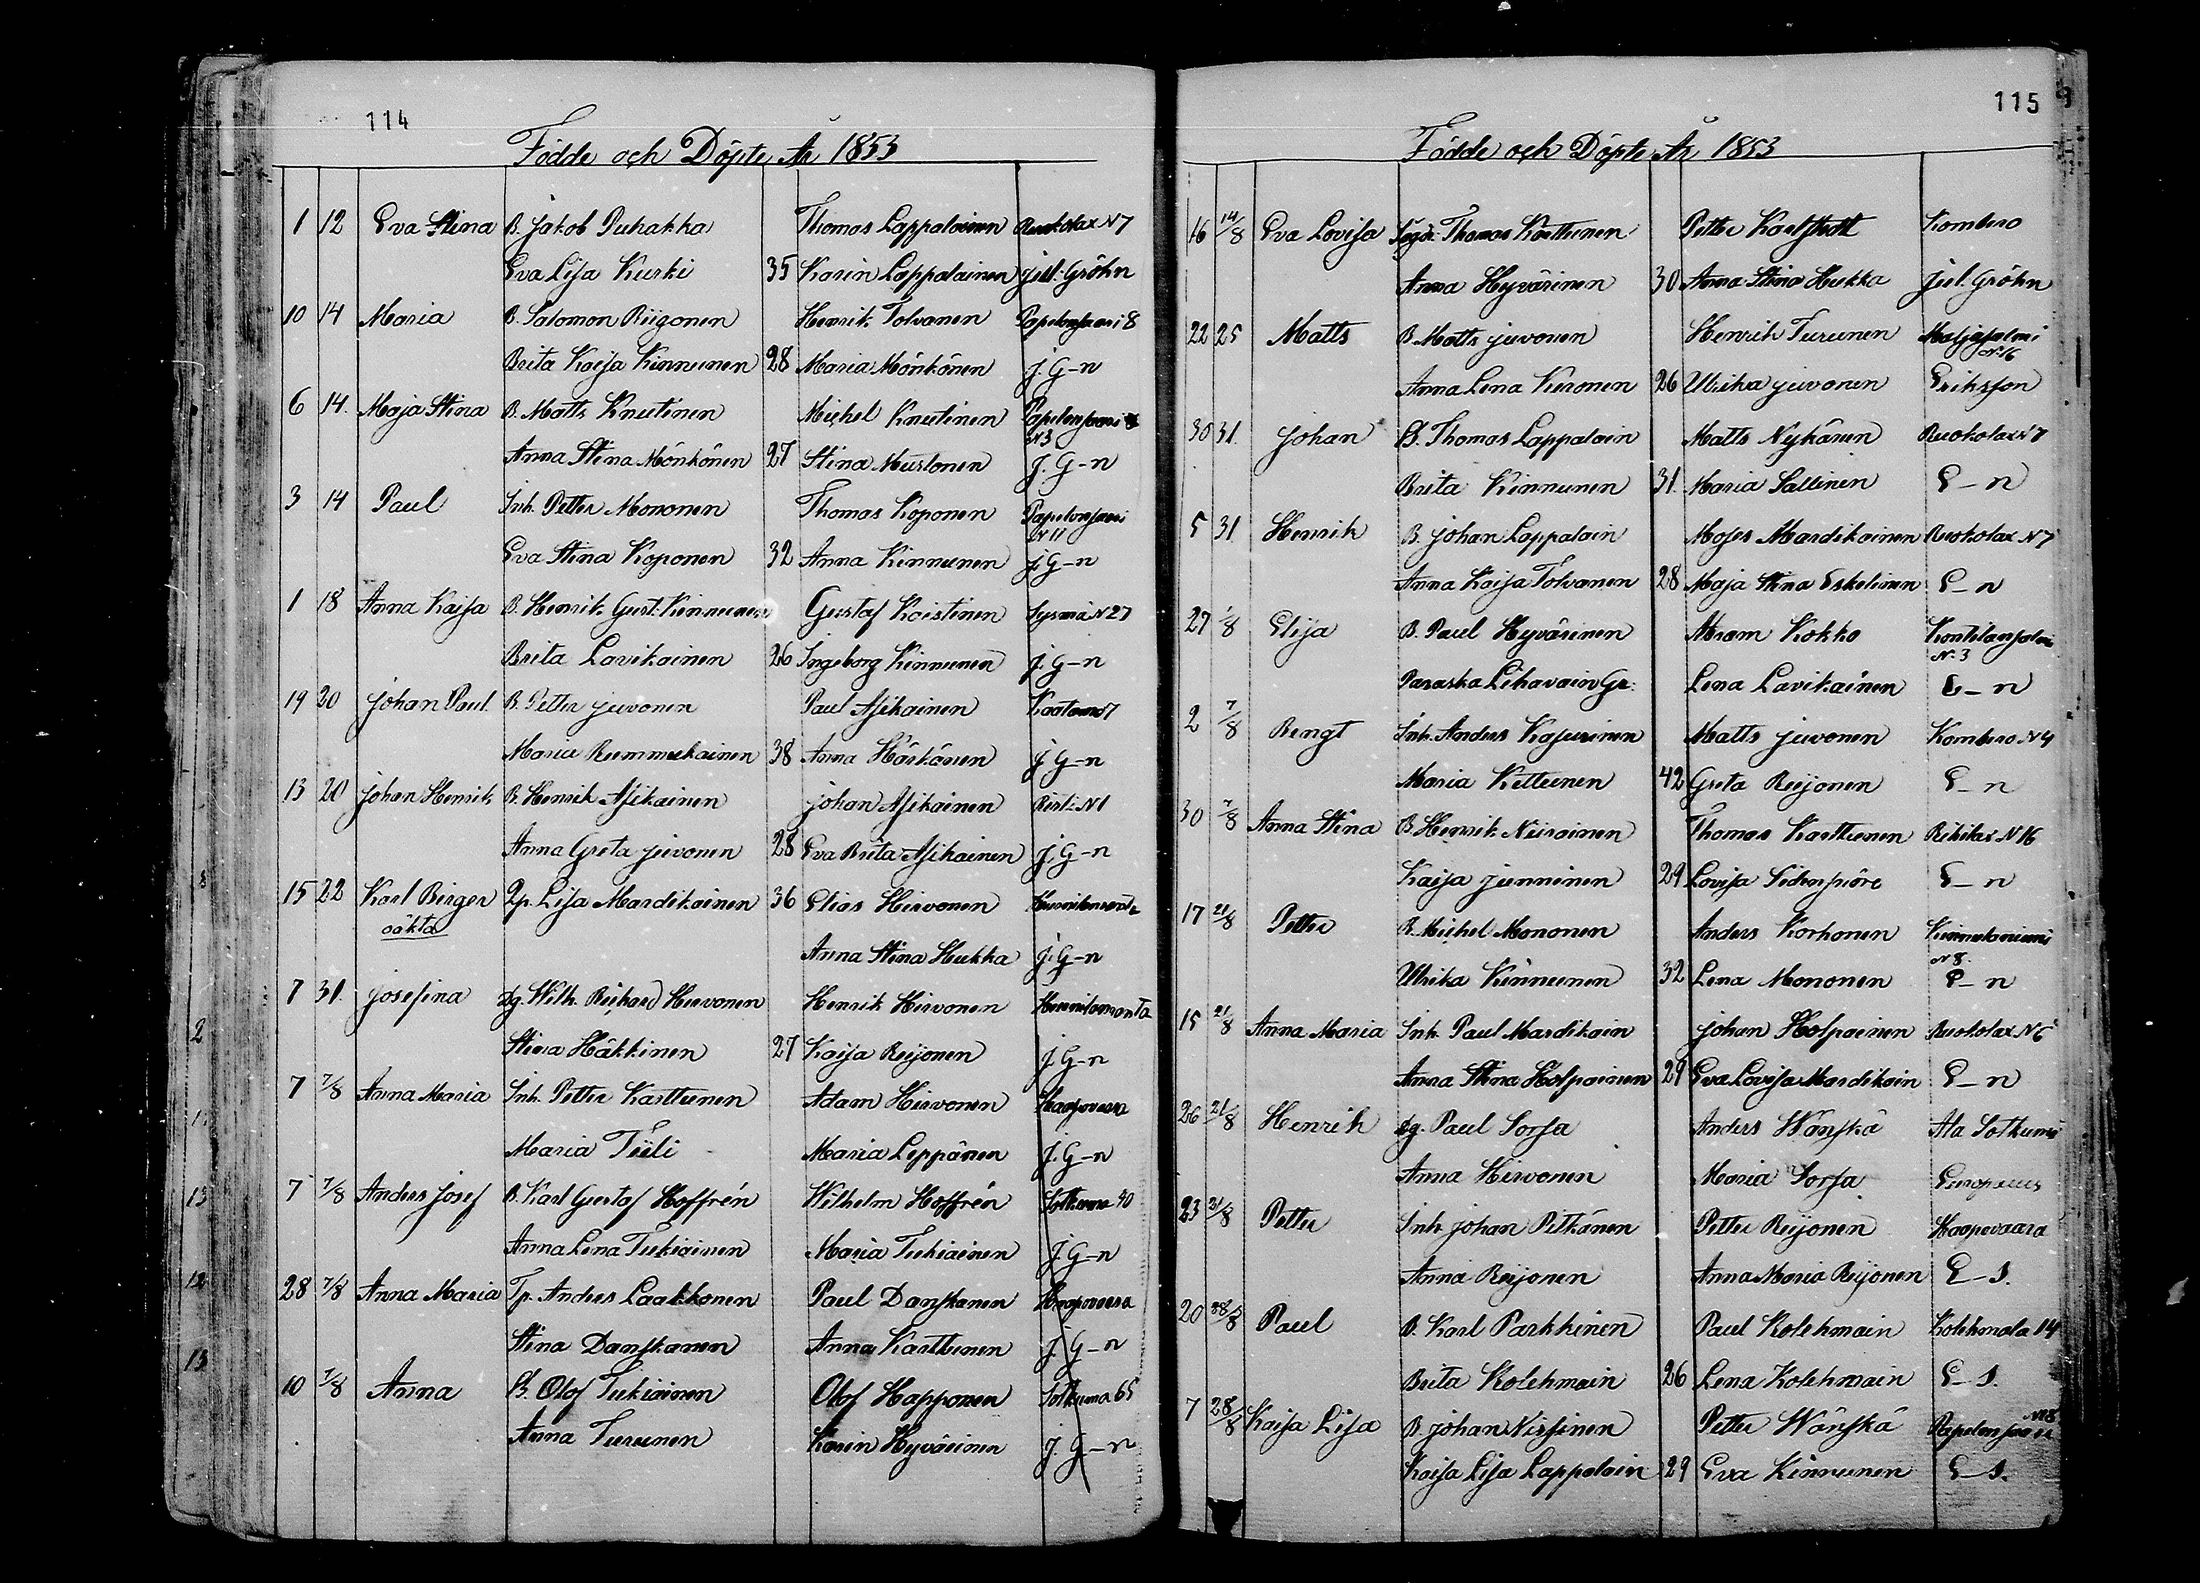 114
Födde och Döpte År 1853
1 12 Eva Stina B. Jakob Puhakka Thomas Lappalainen Ruokolax N 7
Eva Lisa Kurki 35 Karin Lappalainen Jul. Gröhn
10 14 Maria B. Salomon Riigonen Henrik Tolvanen Papelonsaari 8
Brita Kaisa Kinnunen 28 Maria Mönkönen J. G-n
6 14. Maja Stina B. Matts Knuutinen Michel Knuutinen Papelonsaari
N 3
Anna Stina Mönkönen 27 Stina Mustonen J. G-n
3 14 Paul Inh. Petter Mononen Thomas Koponen Papelonsaari
N 11
Eva Stina Koponen 32 Anna Kinnunen J. G-n
1 18 Anna Kaisa B. Henrik Gust. Kinnunen Gustaf Koistinen Sysmä N 27
Brita Lavikainen 26 Ingeborg Kinnunen J. G-n
19 20 Johan Paul B. Petter Juvonen Paul Asikainen
Maria Rummukainen 38 Anna Härkönen J. G-n
13 20 Johan Henrik B. Henrik Asikainen Johan Asikainen Risti N 1
Anna Greta Juvonen 28 Eva Brita Asikainen J. G-n
15 22 Karl Birger Qp. Lisa Mardikainen 36 Elias Hirvonen
oäkta
Anna Stina Hukka J. G-n
7 31. Josefina dg. Wilh. Richard Hirvonen Henrik Hirvonen
Stina Häkkinen 27 Kaisa Reijonen J. G-n
7 7/8 Anna Maria Inh. Petter Karttunen Adam Hirvonen Haapovaara
Maria Tiili Maria Leppänen J. G-n
7 7/8 Anders Josef B. Karl Gustaf Hoffrén Wilhelm Hoffrén Sotkuma 40
Anna Lena Tukiainen Maria Tukiainen J. G-n
28 7/8 Anna Maria Tp. Anders Laakkonen Paul Danskanen Haapovaara
Stina Danskanen Anna Karttunen J. G-n
10 7/8 Anna B. Olof Tukiainen Olof Happonen Sotkuma 65
Anna Turunen Karin Hyvärinen J. G-n
115
Födde och Döpte År 1853
16 14/8 Eva Lovisa Thomas Karttunen Petter Kombero
Anna Hyvärinen 30 Anna Stina Hukka Jul. Gröhn
22 25 Matts B. Matts Juvonen Henrik Turunen
N 16
Anna Lena Kuronen 26 Ulrika Juvonen Eriksson
30 31. Johan B. Thomas Lappalain Matts Nykänen Ruokolax N 7
Brita Kinnunen 31. Maria Sallinen E-n
5 31 Henrik B. Johan Lappalain Moses Mardikainen Ruokolax N 7
Anna Kaisa Tolvanen 28 Maja Stina Eskelinen E-n
27 1/8 Elisa B. Paul Hyvärinen Abram Kokko Kontilansalmi
N. 3
Paraska Lihavain Gr. Lena Lavikainen E-n
2 7/8 Bengt Inh. Anders Kajurinen Matts Juvonen Kombero N 4
Maria Kettunen 42 Greta Reijonen E-n
30 7/8 Anna Stina B. Henrik Niiroinen Thomas Karttunen N 16
Kaisa Junninen 29 Lovisa E-n
17 21/8 Petter B. Michel Mononen Anders Korhonen Kinnulaniemi
N 8.
Ulrika Kinnunen 32 Lena Mononen E-n
15 21/8 Anna Maria Inh. Paul Mardikain Johan Holpainen Ruokolax N 6
Anna Stina Holpainen 29 Eva Lovisa Mardikain E-n
26 21/8 Henrik dg. Paul Sorsa Anders Wänskä Ala Sotkuma
Anna Hirvonen Maria Sorsa Europaeus
23 21/8 Petter Inh. Johan Pitkänen Petter Reijonen Haapovaara
Anna Reijonen Anna Maria Reijonen E-s.
20 28/8 Paul B. Karl Parkkinen Paul Kolehmain Kolehmala 14
Brita Kolehmain 26 Lena Kolehmain E-s.
7 28/8 Kaisa Lisa B. Johan Nissinen Petter Wänskä Papelonsaari N 8
Kaisa Lisa Lappalain 29 Eva Kinnunen E-s.